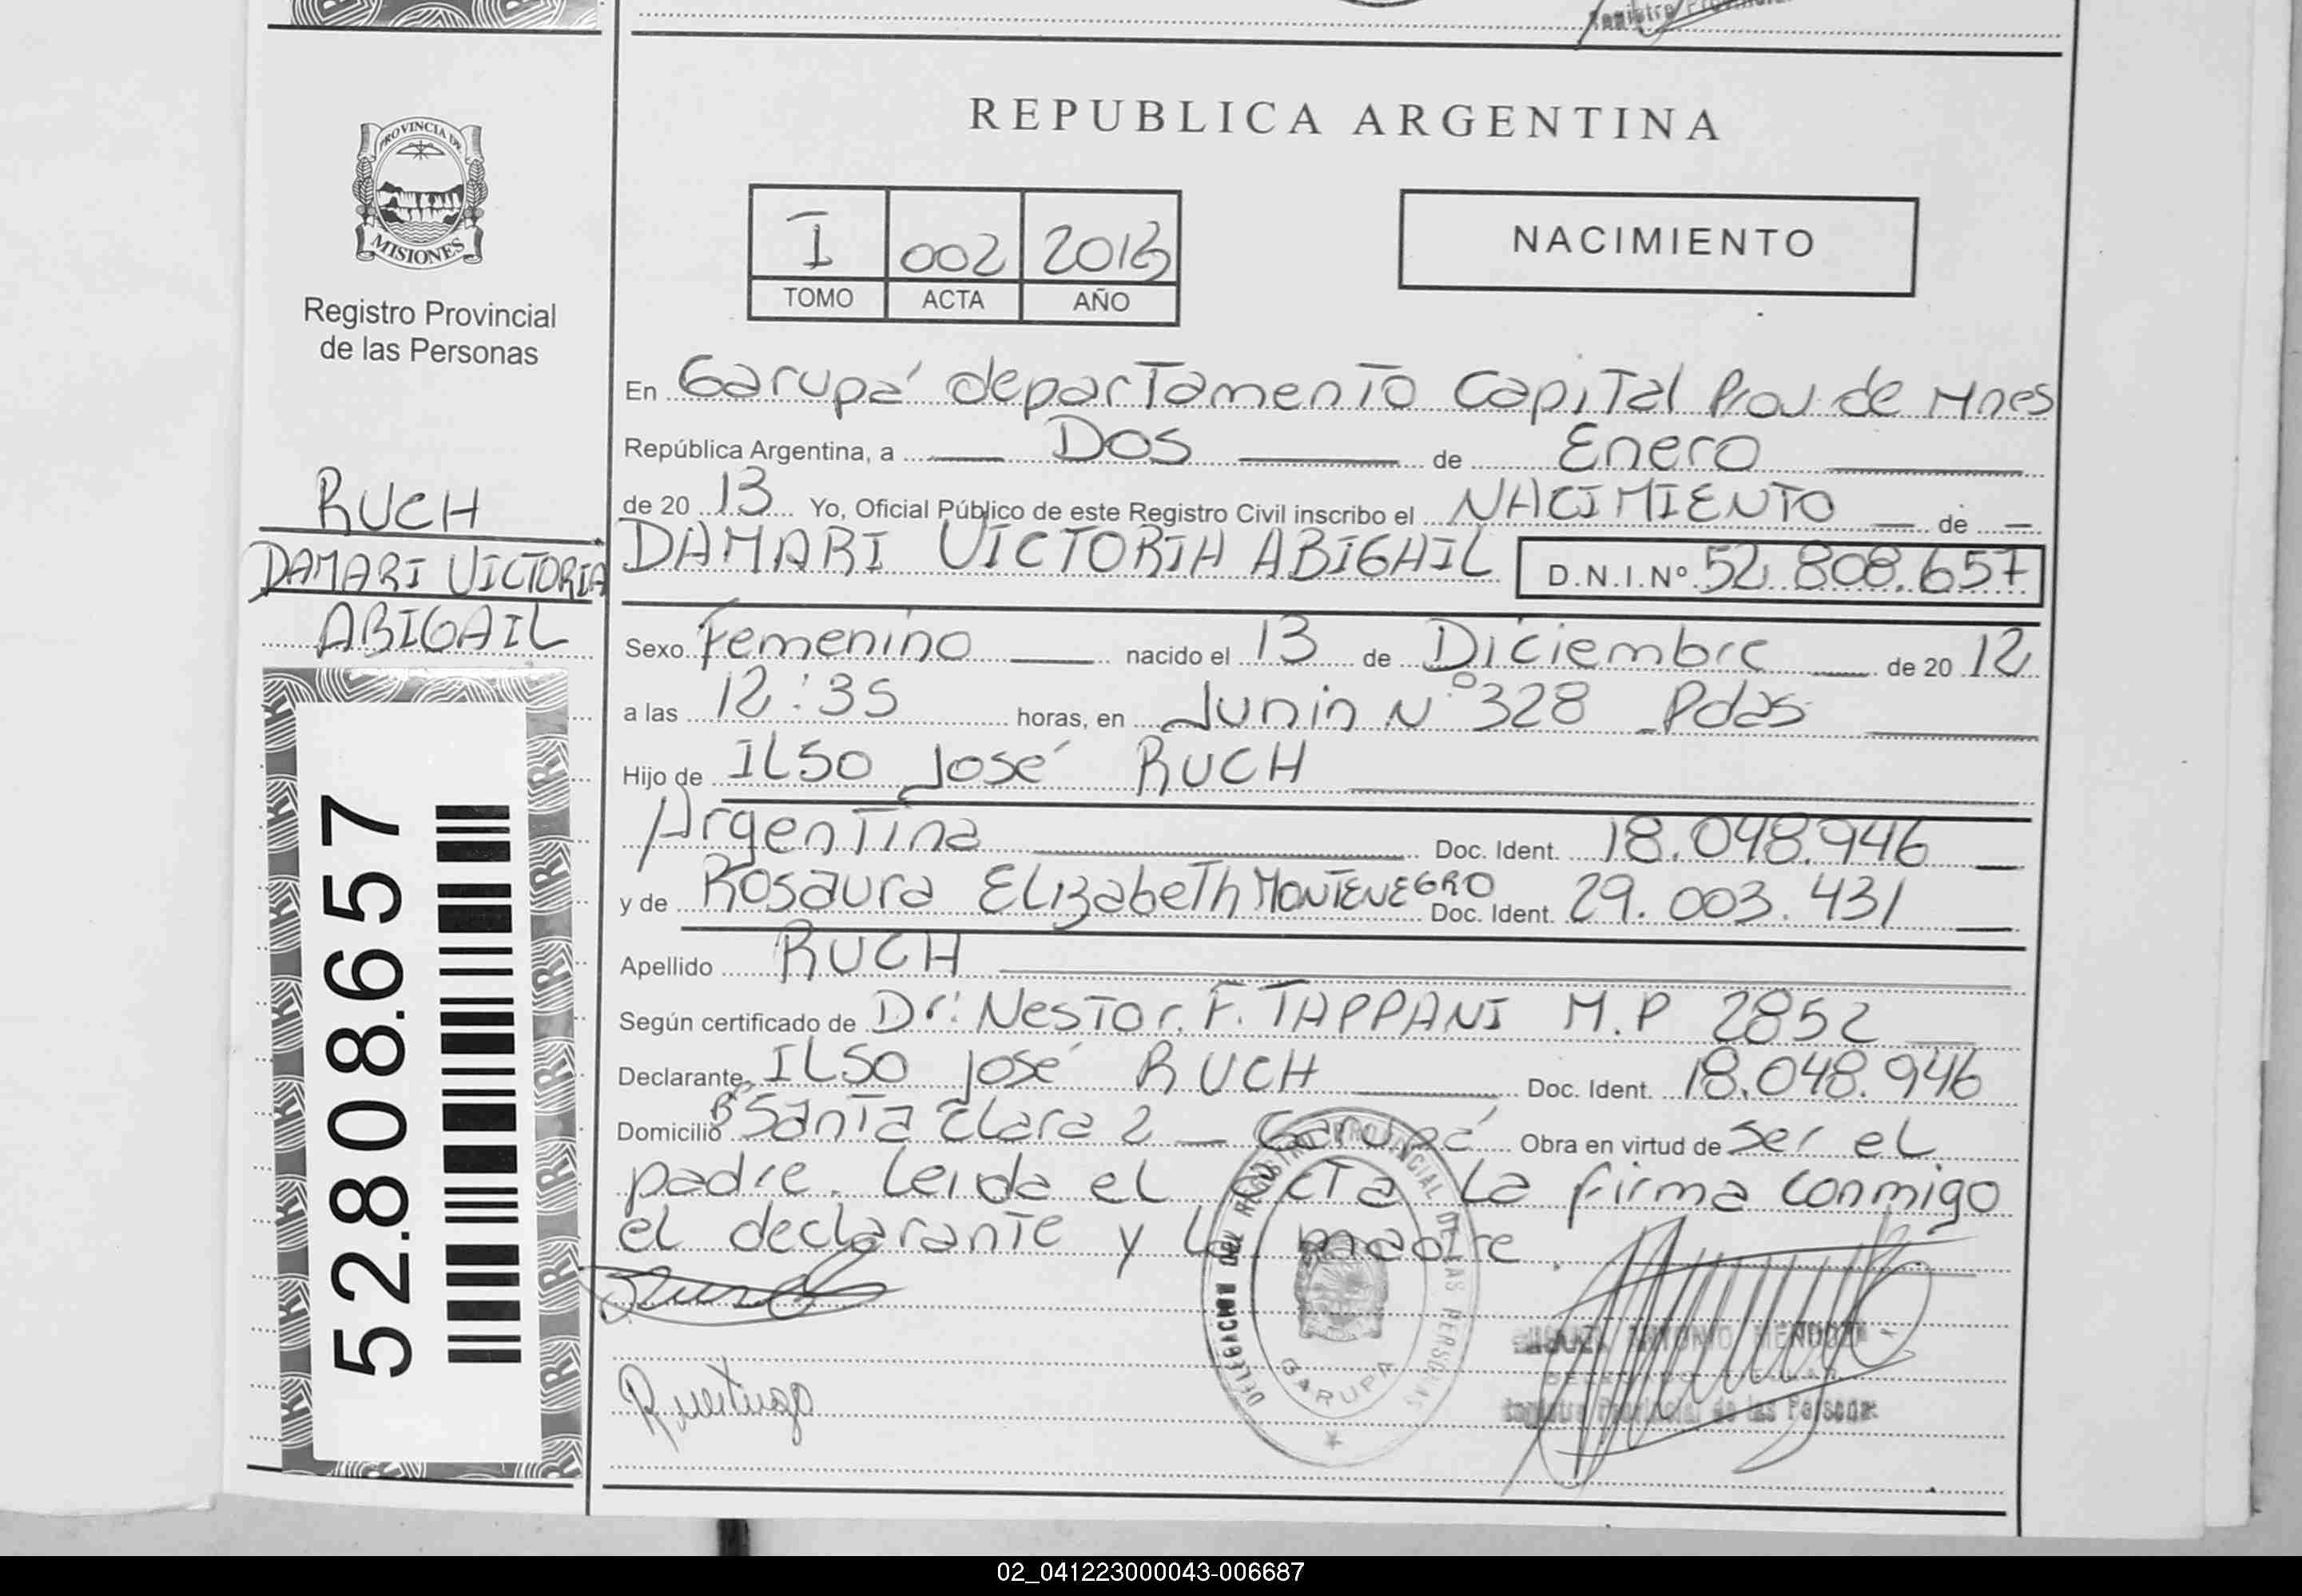 PROVINCIA DE
MISIONES
Registro Provincial
de las Personas
RUCH
DAMARI VICTORIA
ABIGAIL
52.808.657
REPUBLICA ARGENTINA
I 002 2013
TOMO ACTA AÑO
NACIMIENTO
En Garupá departamento Capital Prov de Mnes
República Argentina, a Dos de Enero
de 20 13 Yo, Oficial Público de este Registro Civil inscribo el NACIMIENTO de
DAMARI VICTORIA ABIGAIL D.N.I.Nº 52.808.657
Sexo Femenino nacido el 13 de Diciembre de 20 12
a las 12:35 horas, en Junin Nº 328 Pdas
Hijo de ILSO José RUCH
Argentina Doc. Ident. 18.048.946
y de Rosaura Elizabeth MONTENEGRO Doc. Ident. 29.003.431
Apellido RUCH
Según certificado de Dr: Nestor. F. TAPPANI M.P 2852
Declarante ILSO José RUCH Doc. Ident. 18.048.946
Domicilio Bº Santa Clara 2 - Garupá Obra en virtud de ser el
padre. Leida el acta La firma conmigo
el declarante y la madre.
DELEGACION DEL REGISTRO PROVINCIAL DE LAS PERSONAS
GARUPA
ANTONIO MENDOZA
Registro Provincial de las Personas
02_041223000043-006687